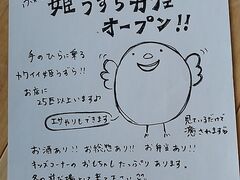 姫うずらカフェ
オープン!!
手のひらに乗る
カワイイ姫うずら!!
お店に
25匹以上います♪
エサやりもできます
見ているだけで
癒されます
お酒あり!! お絵描あり!! お弁当あり!!
キッズコーナーのおもちゃもたっぷりあります。